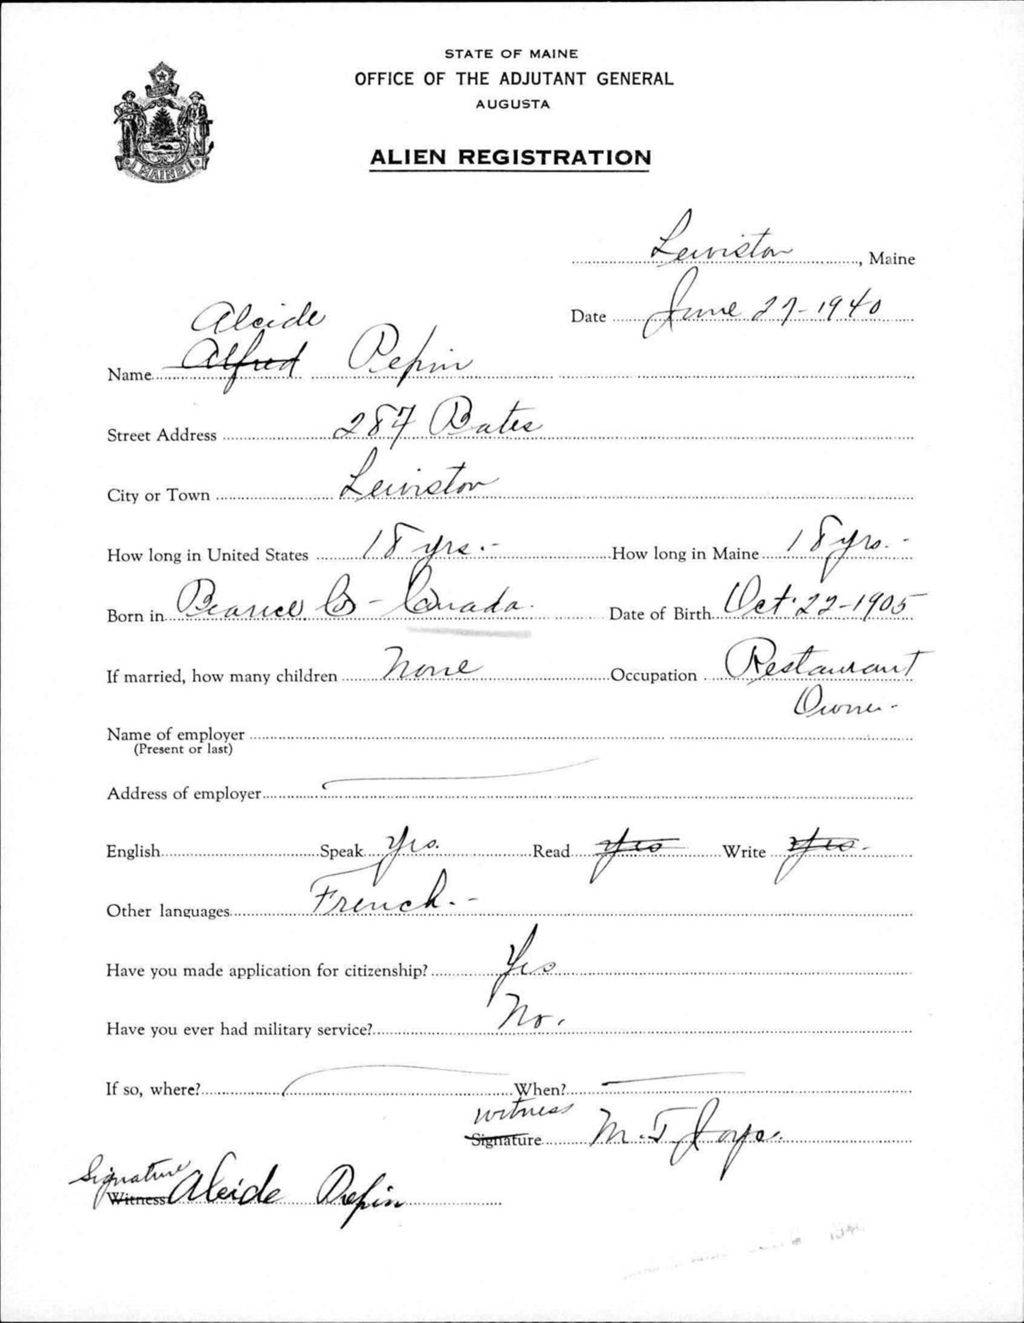 STATE OF MAINE
OFFICE OF THE ADJUTANT GENERAL
AUGUSTA
ALIEN REGISTRATION
MAINE
Lewiston, Maine
Date June 27-1940
Alcide
Name Alfred Pepin
Street Address 287 Bates
City or Town Lewiston
How long in United States 18 yrs.- How long in Maine 18 yrs.-
Born in Beauce Co - Canada. Date of Birth Oct. 22-1905
If married, how many children None Occupation Restaurant
Owner-
Name of employer
(Present or last)
Address of employer
English Speak Yes. Read Yes Write Yes.
Other languages French.-
Have you made application for citizenship? Yes
Have you ever had military service? No.
If so, where? When?
witness
Signature M. T. Joyce.
Signature
Witness Alcide Pepin